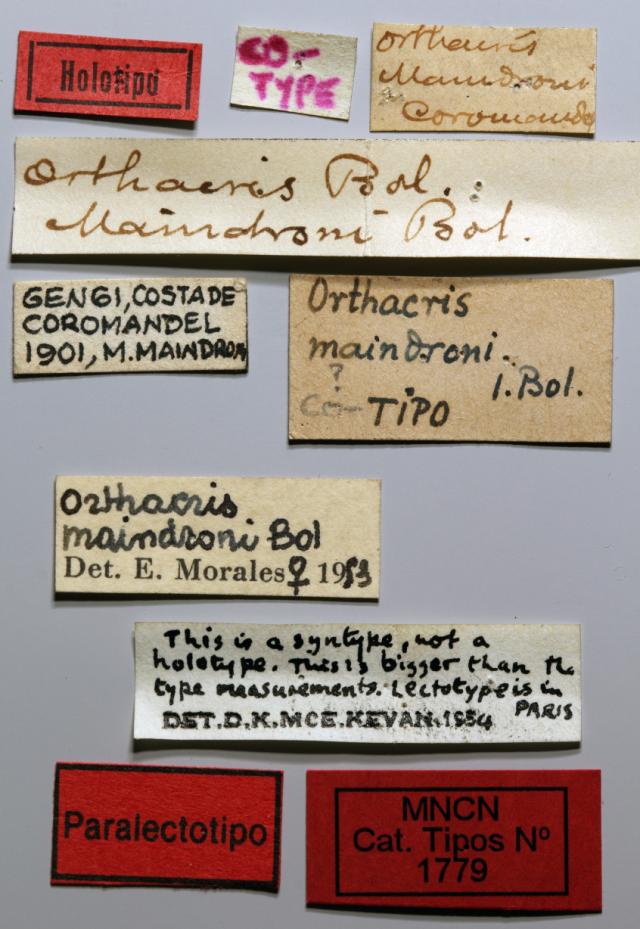 Holotipo
CO-
TYPE
Orthacris
Maindroni
Coromande
Orthacris Bol.
Maindroni Bol.
GENGI, COSTA DE
COROMANDEL
1901, M. MAINDRON
Orthacris
maindroni.
? I. Bol.
CO- TIPO
Orthacris
maindroni Bol
Det. E. Morales ♀ 1953
This is a syntype, not a
holotype. This is bigger than the
type measurements. Lectotype is in
PARIS
DET. D.K. MCE. KEVAN. 1954
Paralectotipo
MNCN
Cat. Tipos Nº
1779